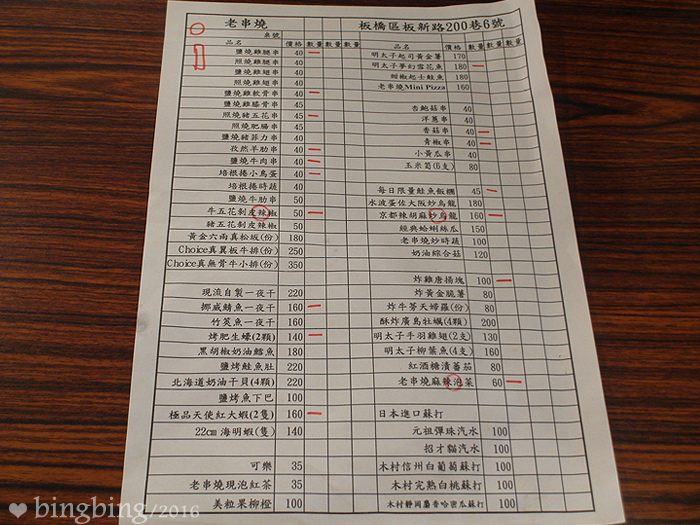 老串燒 板橋區板新路200巷6號
桌號
品名 價格 數量 數量 數量
鹽燒雞腿串 40
照燒雞腿串 40
鹽燒雞翅串 40
照燒雞翅串 40
鹽燒雞軟骨串 40
鹽燒雞膝骨串 45
照燒豬五花串 45
照燒肥腸串 45
鹽燒雞菲力串 40
孜然羊肋串 40
鹽燒牛肉串 40
培根捲小鳥蛋 40
培根捲時蔬 40
鹽燒牛肋串 50
牛五花剝皮辣椒 50
豬五花剝皮辣椒 50
黃金六兩真松坂(份) 180
Choice真翼板牛排(份) 250
Choice真無骨牛小排(份) 350
現流自製一夜干 220
挪威鯖魚一夜干 160
竹筴魚一夜干 160
烤肥生蠔(2顆) 140
黑胡椒奶油鱈魚 180
鹽烤鮭魚肚 220
北海道奶油干貝(4顆) 220
鹽烤魚下巴 100
極品天使紅大蝦(2隻) 160
22cm 海明蝦(隻) 140
可樂 35
老串燒現泡紅茶 35
美粒果柳橙 100
品名 價格 數量 數量 數量
明太子起司黃金薯 170
明太子夢幻雪花魚 180
甜椒起士鮭魚 180
老串燒Mini Pizza 160
杏鮑菇串 40
洋蔥串 40
香菇串 40
青椒串 40
小黃瓜串 40
玉米筍(6支) 80
每日限量鮭魚飯糰 45
水波蛋佐大阪炒烏龍 180
京都辣胡麻炒烏龍 160
經典蛤蜊絲瓜 150
老串燒炒時蔬 100
奶油綜合菇 120
炸雞唐揚塊 100
炸黃金脆薯 80
炸牛蒡天婦羅(份) 80
酥炸廣島牡蠣(4顆) 200
明太子手羽雞翅(2支) 130
明太子柳葉魚(4支) 160
紅酒糖漬蕃茄 80
老串燒麻辣泡菜 60
日本進口蘇打
元祖彈珠汽水 100
招才貓汽水 100
木村信州白葡萄蘇打 100
木村完熟白桃蘇打 100
木村靜岡麝香哈密瓜蘇打 100
bingbing/2016